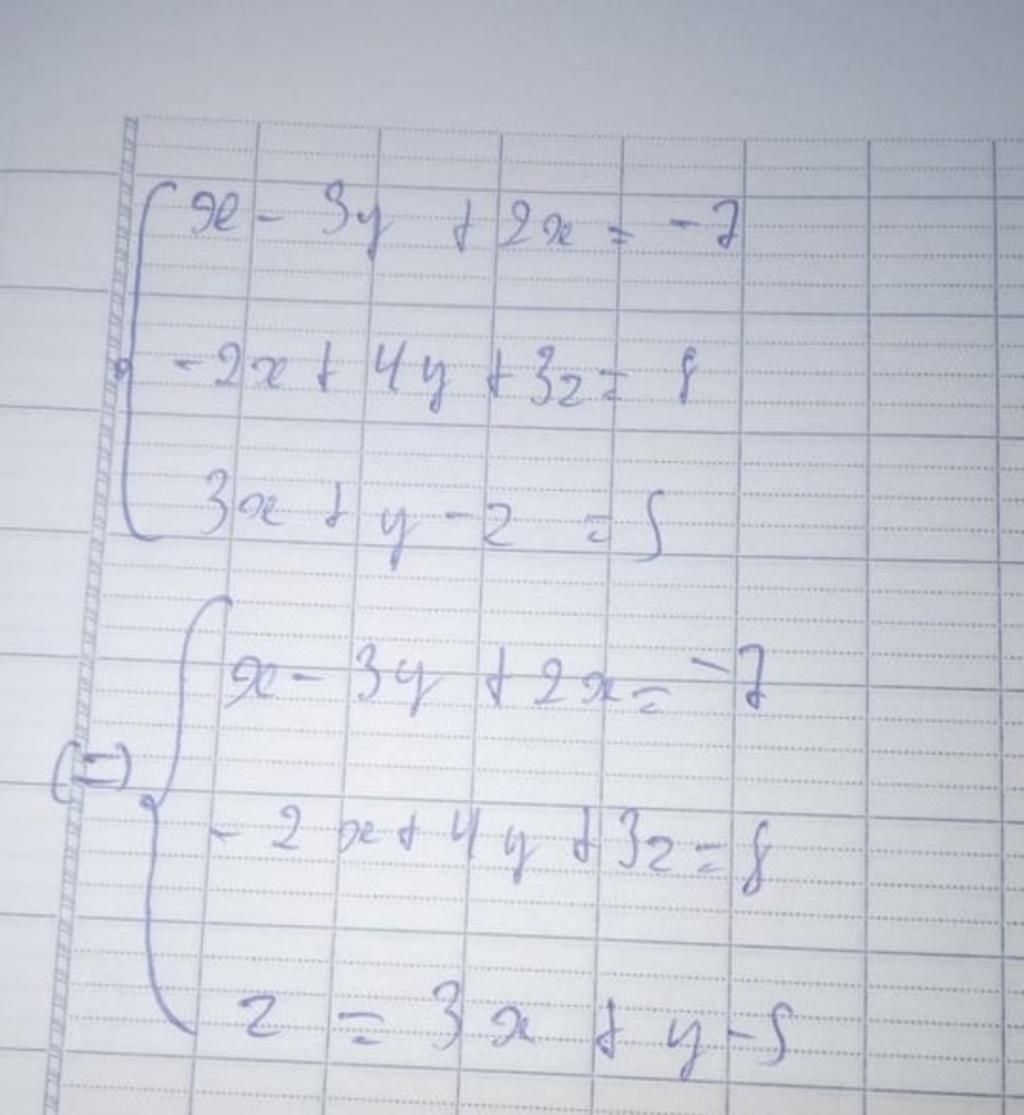 x - 3y + 2x = -7
-2x + 4y + 3z = 8
3x + y - z = 5
x - 3y + 2x = -7
(I)
- 2x + 4y + 3z = 8
z = 3x + y - 5